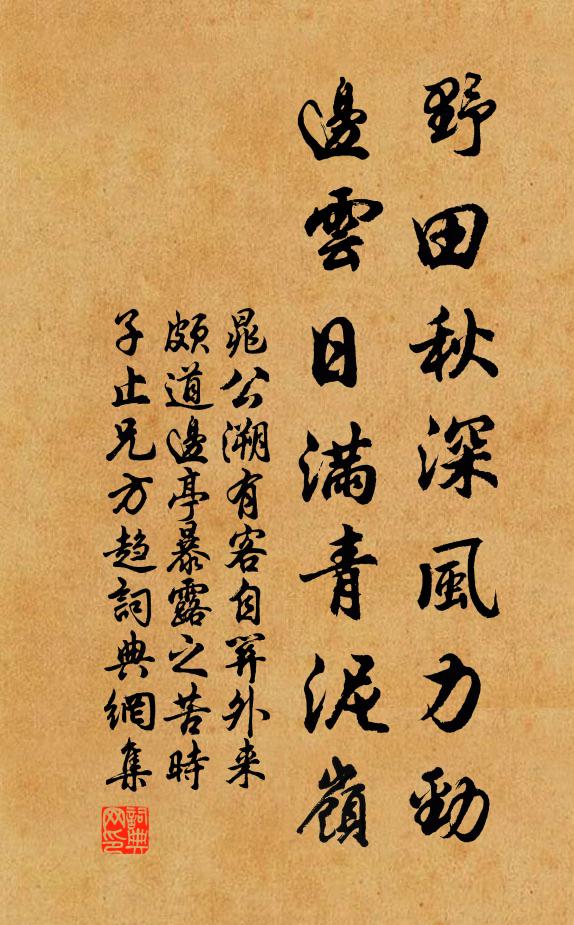 野田秋深風力勁
邊雲日滿青泥嶺
晁公溯有客自關外来
頗道邊亭暴露之苦時
子止兄方趋詞典網集
詞典网印